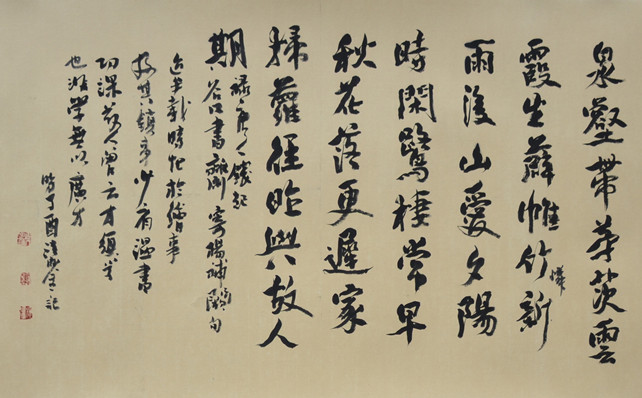 泉壑帶茅茨雲
霞生薜帷竹憐新
雨後山愛夕陽
時閑鷺棲常早
秋花落更遲家
掃蘿徑昨與故人
期
錄唐人錢起
谷口書齋寄楊補闕句
近半載時忙於繪事
事少有溫書
功課故人曾云才須學
也非學無以廣才
時丁酉記